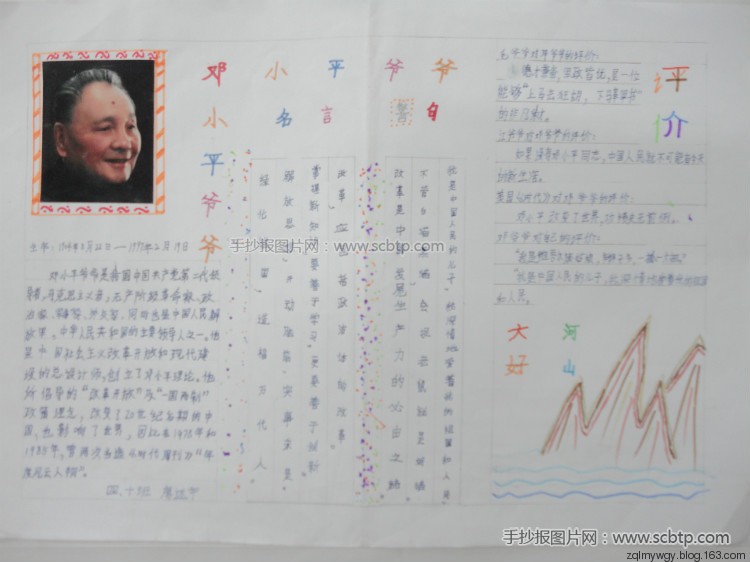 邓小平爷爷
名言警句
邓小平爷爷
生卒：1904年8月22日——1997年2月19日
邓小平爷爷是我国中国共产党第二代领
导者，马克思主义者，无产阶级革命家、政
治家、军事家、外交家，同时也是中国人民解
放军、中华人民共和国的主要领导人之一。他
是中国社会主义改革开放和现代建
设的总设计师，创立了邓小平理论。他
所倡导的“改革开放”及“一国两制”
政策理念，改变了20世纪后期的中
国，也影响了世界，因此在1978年和
1985年，曾两次当选《时代周刊》“年
度风云人物”。
四.十班
我是中国人民的儿子，我深情地爱着我的祖国和人民。
不管白猫黑猫会捉老鼠就是好猫
改革是中国发展生产力的必由之路
改革，应包括政治体制的改革。
要提新知，要善于学习，更要善于创新
解放思想，开动脑筋，实事求是
评价
毛爷爷对邓爷爷的评价：
江爷爷对邓爷爷的评价：
如果没有邓小平同志，中国人民就不可能有今天
的新生活。
美国《时代》对邓爷爷的评价：
邓小平改变了世界，
邓爷爷对自己的评价：
“我是中国人民的儿子，我深情地爱着我的祖国
和人民。
大好
河山
手抄报图片网：www.scbtp.com
手抄报图片网：www.scbtp.com
zqlmywgy.blog.163.com